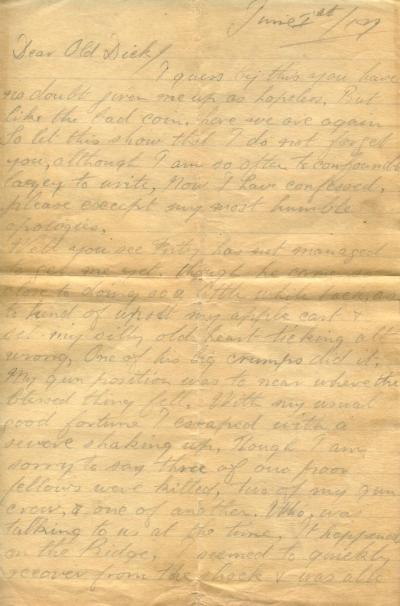 June 1st/17
Dear Old Dick/
I guess by this you have
no doubt given me up as hopeless. But
like the bad coin, here we are again
to let this show that I do not forget
you, although I am so often to confoundly
lazy to write, Now I have confessed,
please except my most humble
apologies.
Well you see Fritz has not managed
to get me yet. though he came
close to doing so a little while back, as
to kind of upset my apple cart &
set my silly old heart ticking all
wrong, One of his big crumps did it,
My gun position was to near where the
blessed thing fell. With my usual
good fortune I escaped with a
severe shaking up, though I am
sorry to say three of our poor
fellows were killed, two of my gun
crew, & one of another. Who, was
talking to us at the time, It happened
on the Ridge, seemed to quickly
recover from the shock & was able